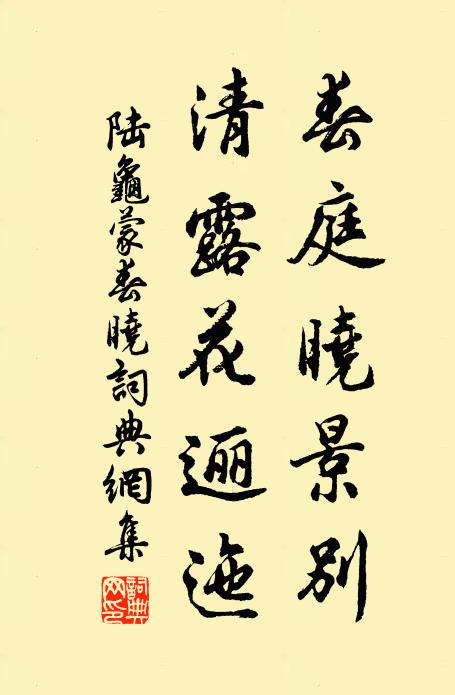 春庭曉景別
清露花邐迤
陆龜蒙春曉詞典網集
詞典網印